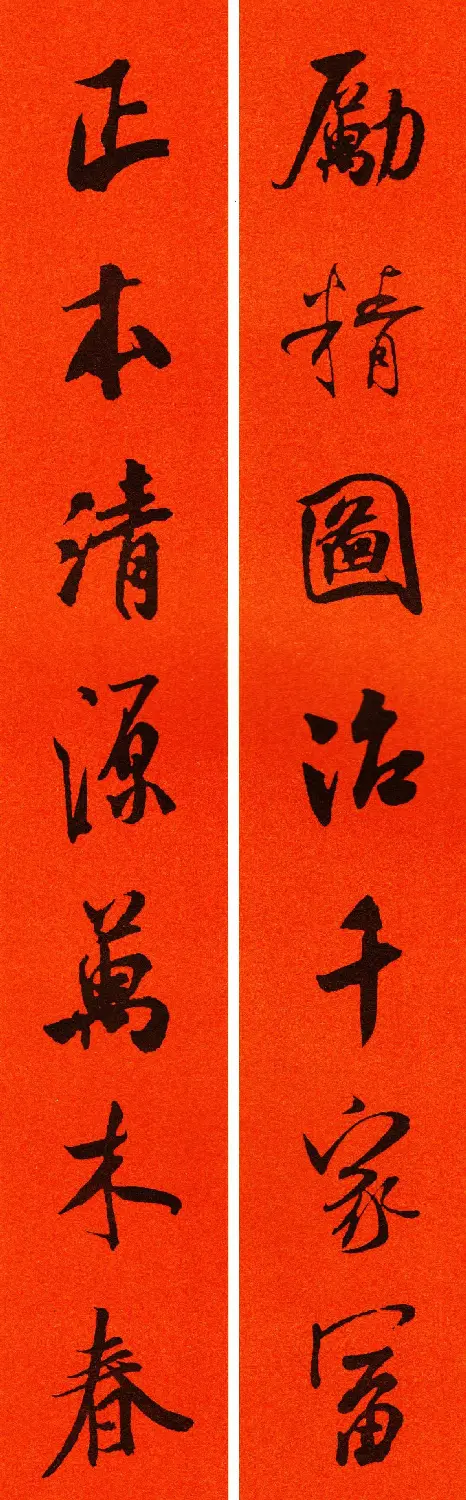 勵精圖治千家富
正本清源萬木春